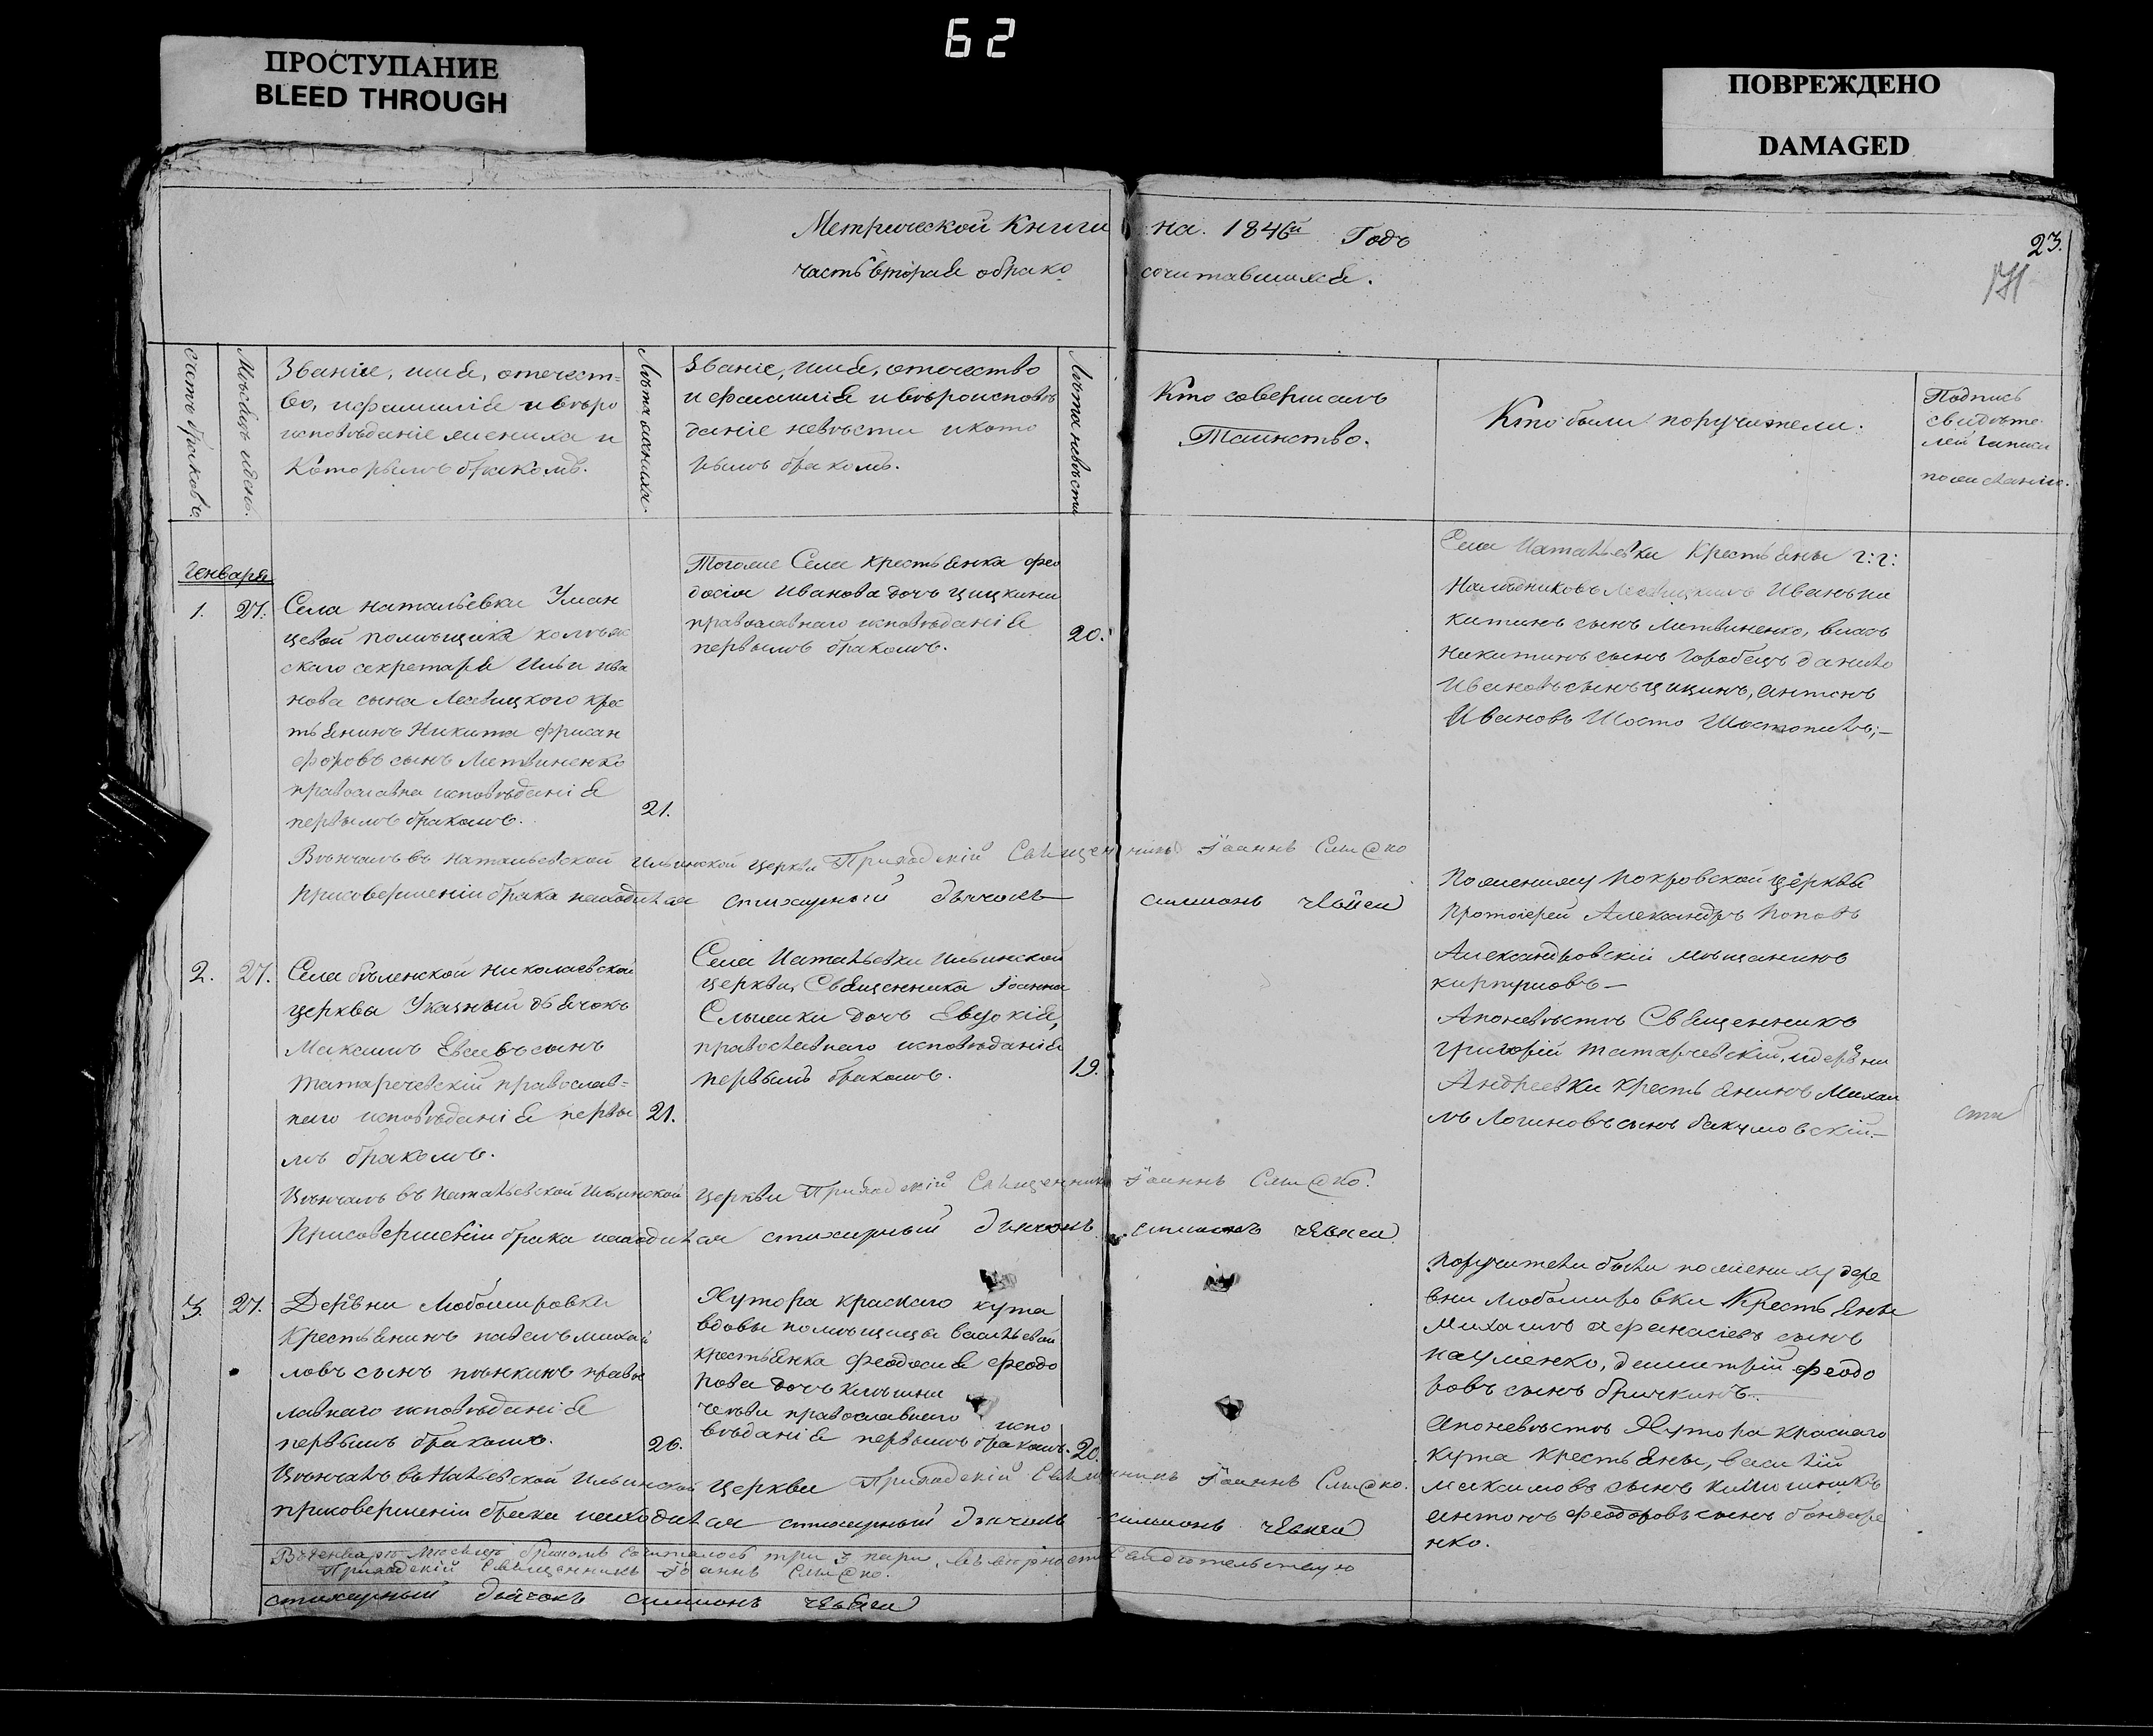 62
ПРОСТУПАНИЕ
BLEED THROUGH
ПОВРЕЖДЕНО
DAMAGED
Метрической Книги на 1846й Годъ
часть вторая о брако сочитавшихся.
23.
счетъ браковъ.
Мѣсяцъ и день.
Званіе, имя, отечест-
во, и фамилія и вѣро
исповѣданіе жениха и
которымъ бракомъ.
Лѣта жениха.
Званіе, имя, отечество
и фамилія и вѣроисповѣ
даніе невѣсты и кото
рымъ бракомъ.
Лѣта невѣсты
Кто совершалъ
Таинство.
Кто были поручители.
Подпись
свидѣте
лей записи
по желанію.
Генваря
1.
27.
Села Натальевки Уман
цевой помѣщика коллеж
скаго секретаря Ильи Ива
нова сына Лесевицкого крес
тьянинъ Никита
форовъ сынъ Литвиненко
православна исповѣданія
первымъ бракомъ.
21.
Тогоже Села крестьянка Фео
досія Иванова дочь Цицкини
православнаго исповѣданія
первымъ бракомъ.
20.
Села Натальевки Крестьяны г: г:
Наслѣдниковъ Лесевицкихъ Иванъ Ни
китинъ сынъ Литвиненко, Власъ
Никитинъ сынъ Горобецъ Данило
Ивановъ сынъ Цицинъ, Антонъ
Ивановъ
Вѣнчалъ въ Натальевской Ильинской церкви Приходскій Священникъ Іоаннъ
При совершеніи брака находился стихарный дьячокъ Симионъ
2.
27.
Села Бѣленской Николаевской
церквы Указный дьячокъ
Максимъ Евсѣевъ сынъ
Татаречевскій православ-
наго исповѣданія первы
мъ бракомъ.
21.
Села Натальевки Ильинской
церквы Священника Іоанна
дочь Евдокія,
православнаго исповѣданія
первымъ бракомъ.
19.
По жениху Покровской церквы
Протоіерей Александръ Поповъ
Александровскій мѣщанинъ
А по невѣстѣ Священникъ
Григорій Татарчевскій, и деревни
Андреевки крестьянинъ Михаи
лъ Логиновъ сынъ
Вѣнчалъ въ Натальевской Ильинской церкви Приходскій Священникъ Іоаннъ
При совершеніи брака находился стихарный дьячокъ Симионъ
3.
27.
Деревни Любомировки
Крестьянинъ Павелъ Михай
ловъ сынъ Пѣнкинъ право
лавнаго исповѣданія
первымъ бракомъ.
26.
Хутора краснаго кута
вдовы помѣщицы Васильевой
крестьянка Феодосия Феодо
рова дочь
православнаго испо
вѣданія первымъ бракомъ.
20.
Поручители были по жениху дере
вни Любомировки Крестьяны
Михаилъ Афанасіевъ сынъ
Науменко, Димитрій Феодо
ровъ сынъ Бричкинъ.
А по невѣстѣ Хутора Краснаго
Кута Крестьяны, Василій
Максимовъ сынъ
Антонъ Феодоровъ сынъ Бондаре
нко.
Вѣнчалъ въ Натьевской Ильинской церкви Приходскій Священникъ Іоаннъ
При совершеніи брака находился стихарный дьячокъ Симионъ
В генварѣ Мѣсяцѣ бракомъ сочиталось три 3 пары, въ вѣрности свидѣтельствую
Приходскій Священникъ Іоаннъ
стихарный дьячокъ Симионъ